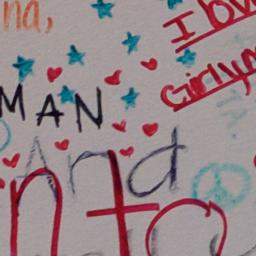 na,
I lov
Girlym
MAN
And
nto